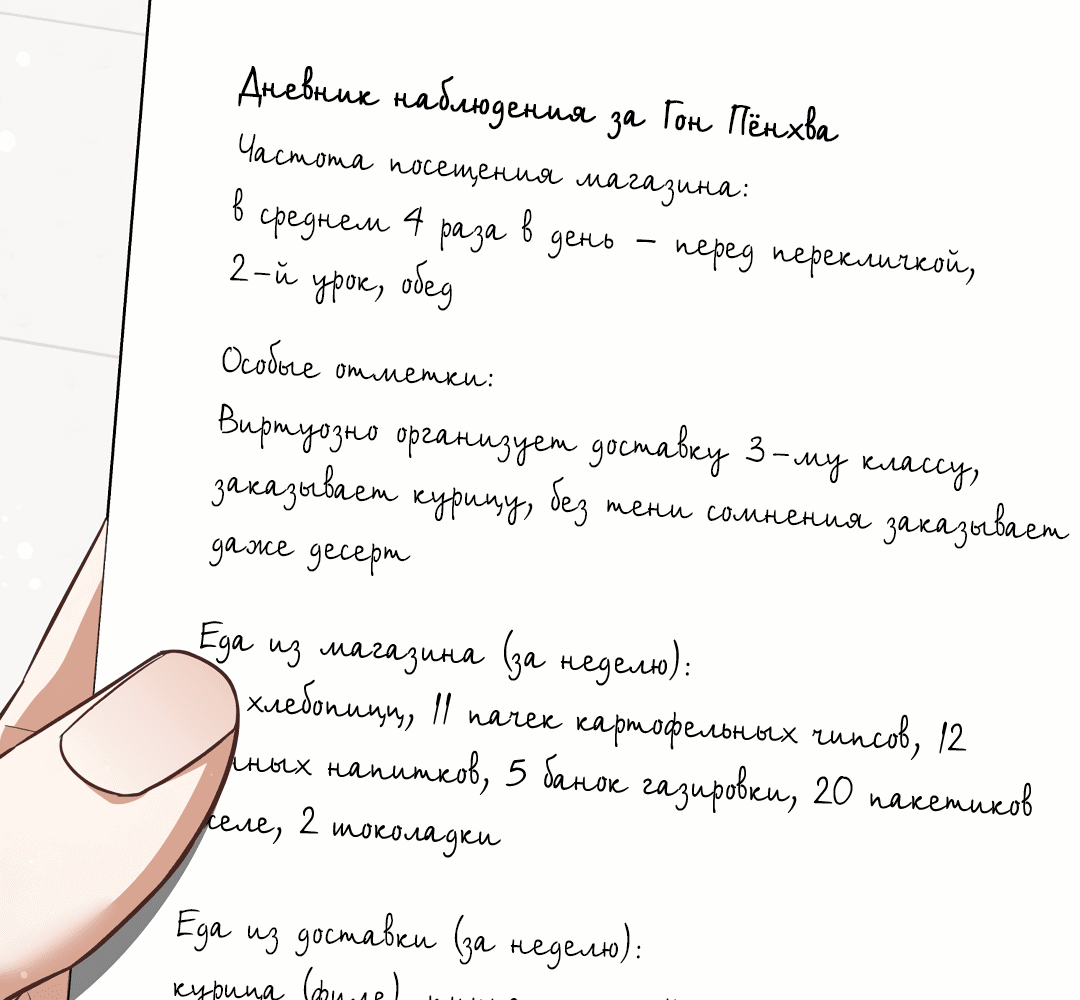 Дневник наблюдения за Гон Пёнхва
Частота посещения магазина:
в среднем 4 раза в день – перед перекличкой,
2-й урок, обед
Особые отметки:
Виртуозно организует доставку 3-му классу,
заказывает курицу, без тени сомнения заказывает
даже десерт
Еда из магазина (за неделю):
хлебопицц, 11 пачек картофельных чипсов, 12
напитков, 5 банок газировки, 20 пакетиков
2 шоколадки
Еда из доставки (за неделю):
курица (филе)